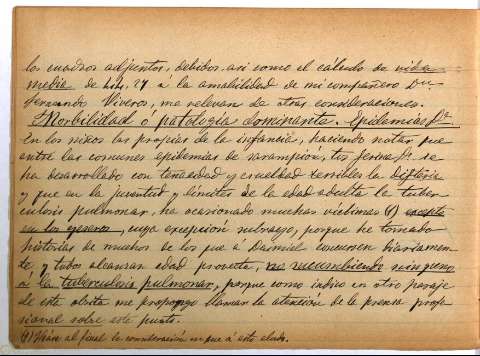 los cuadros adjuntos, debidos asi como el cálculo de vida
media de hits, 27 á la amabilidad de mi compañero Dn
Fernando Viveros, me relevan de otras consideraciones.
Morbilidad ó patologia dominante. Epidemias &a
En los niños las propias de la infancia, haciendo notar que
entre las comunes epidemias de sarampión, tos ferina &a se
ha desarrollado con tenacidad y crueldad terribles la difteria
y que en la juventud y límites de la edad adulta la tuber-
culosis pulmonar, ha ocasionado muchas víctimas (1) excepto
en los yeseros, cuya excepción subrayo, porque he tomado
historias de muchos de los que á Daimiel concurren diariamen-
te, y todos alcanzan edad provecta, no sucumbiendo ninguno
á la tuberculosis pulmonar, porque como indico en otro pasaje
de esta obrita me propongo llamar la atención de la prensa profe-
sional sobre este punto.
(1) Véase al final la consideración en que á esto aludo.